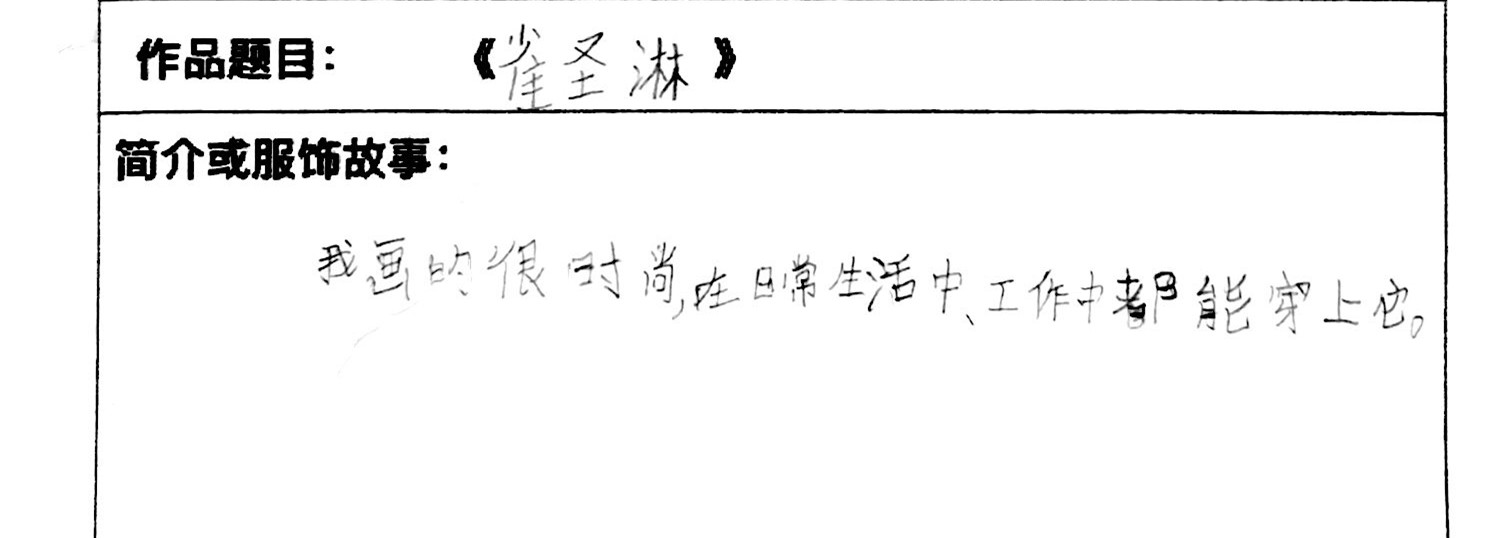 作品题目：《雀圣淋》
简介或服饰故事：
我画的很时尚,在日常生活中、工作中都能穿上它。